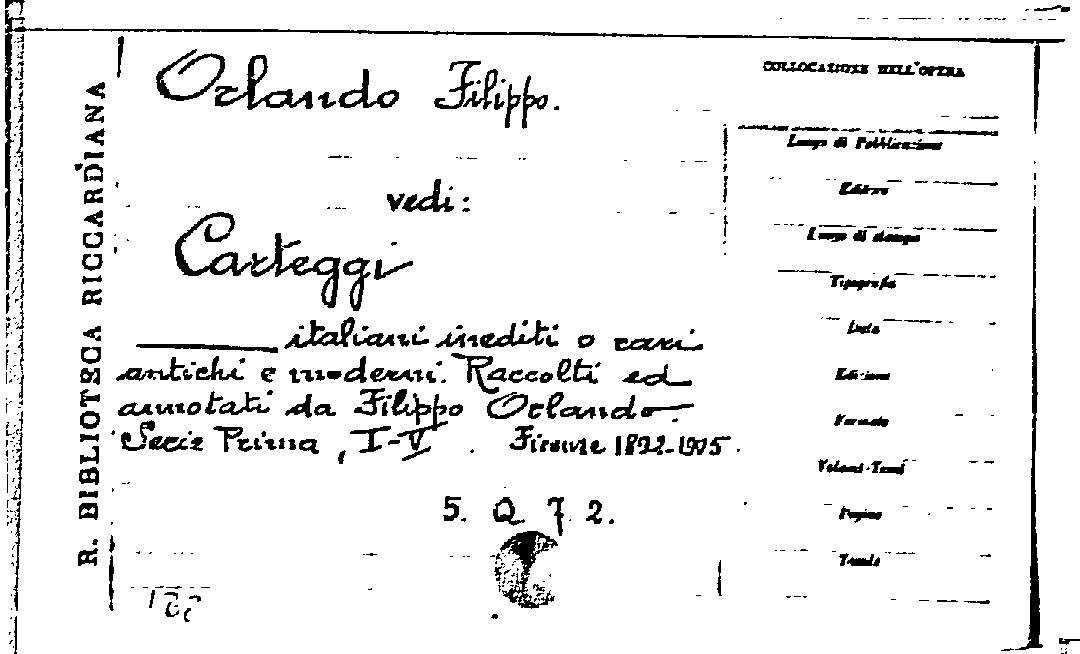 R. BIBLIOTECA RICCARDIANA
Orlando Filippo.
vedi:
Carteggi
italiani inediti o rari
antichi e moderni. Raccolti ed
annotati da Filippo Orlando.
Serie Prima, I-V. Firenze 1892-1905.
5. Q 7 2.
COLLOCAZIONE DELL'OPERA
Luogo di Pubblicazione
Editore
Luogo di stampa
Tipografia
Data
Edizione
Formato
Volumi-Tomi
Pagine
Tavole